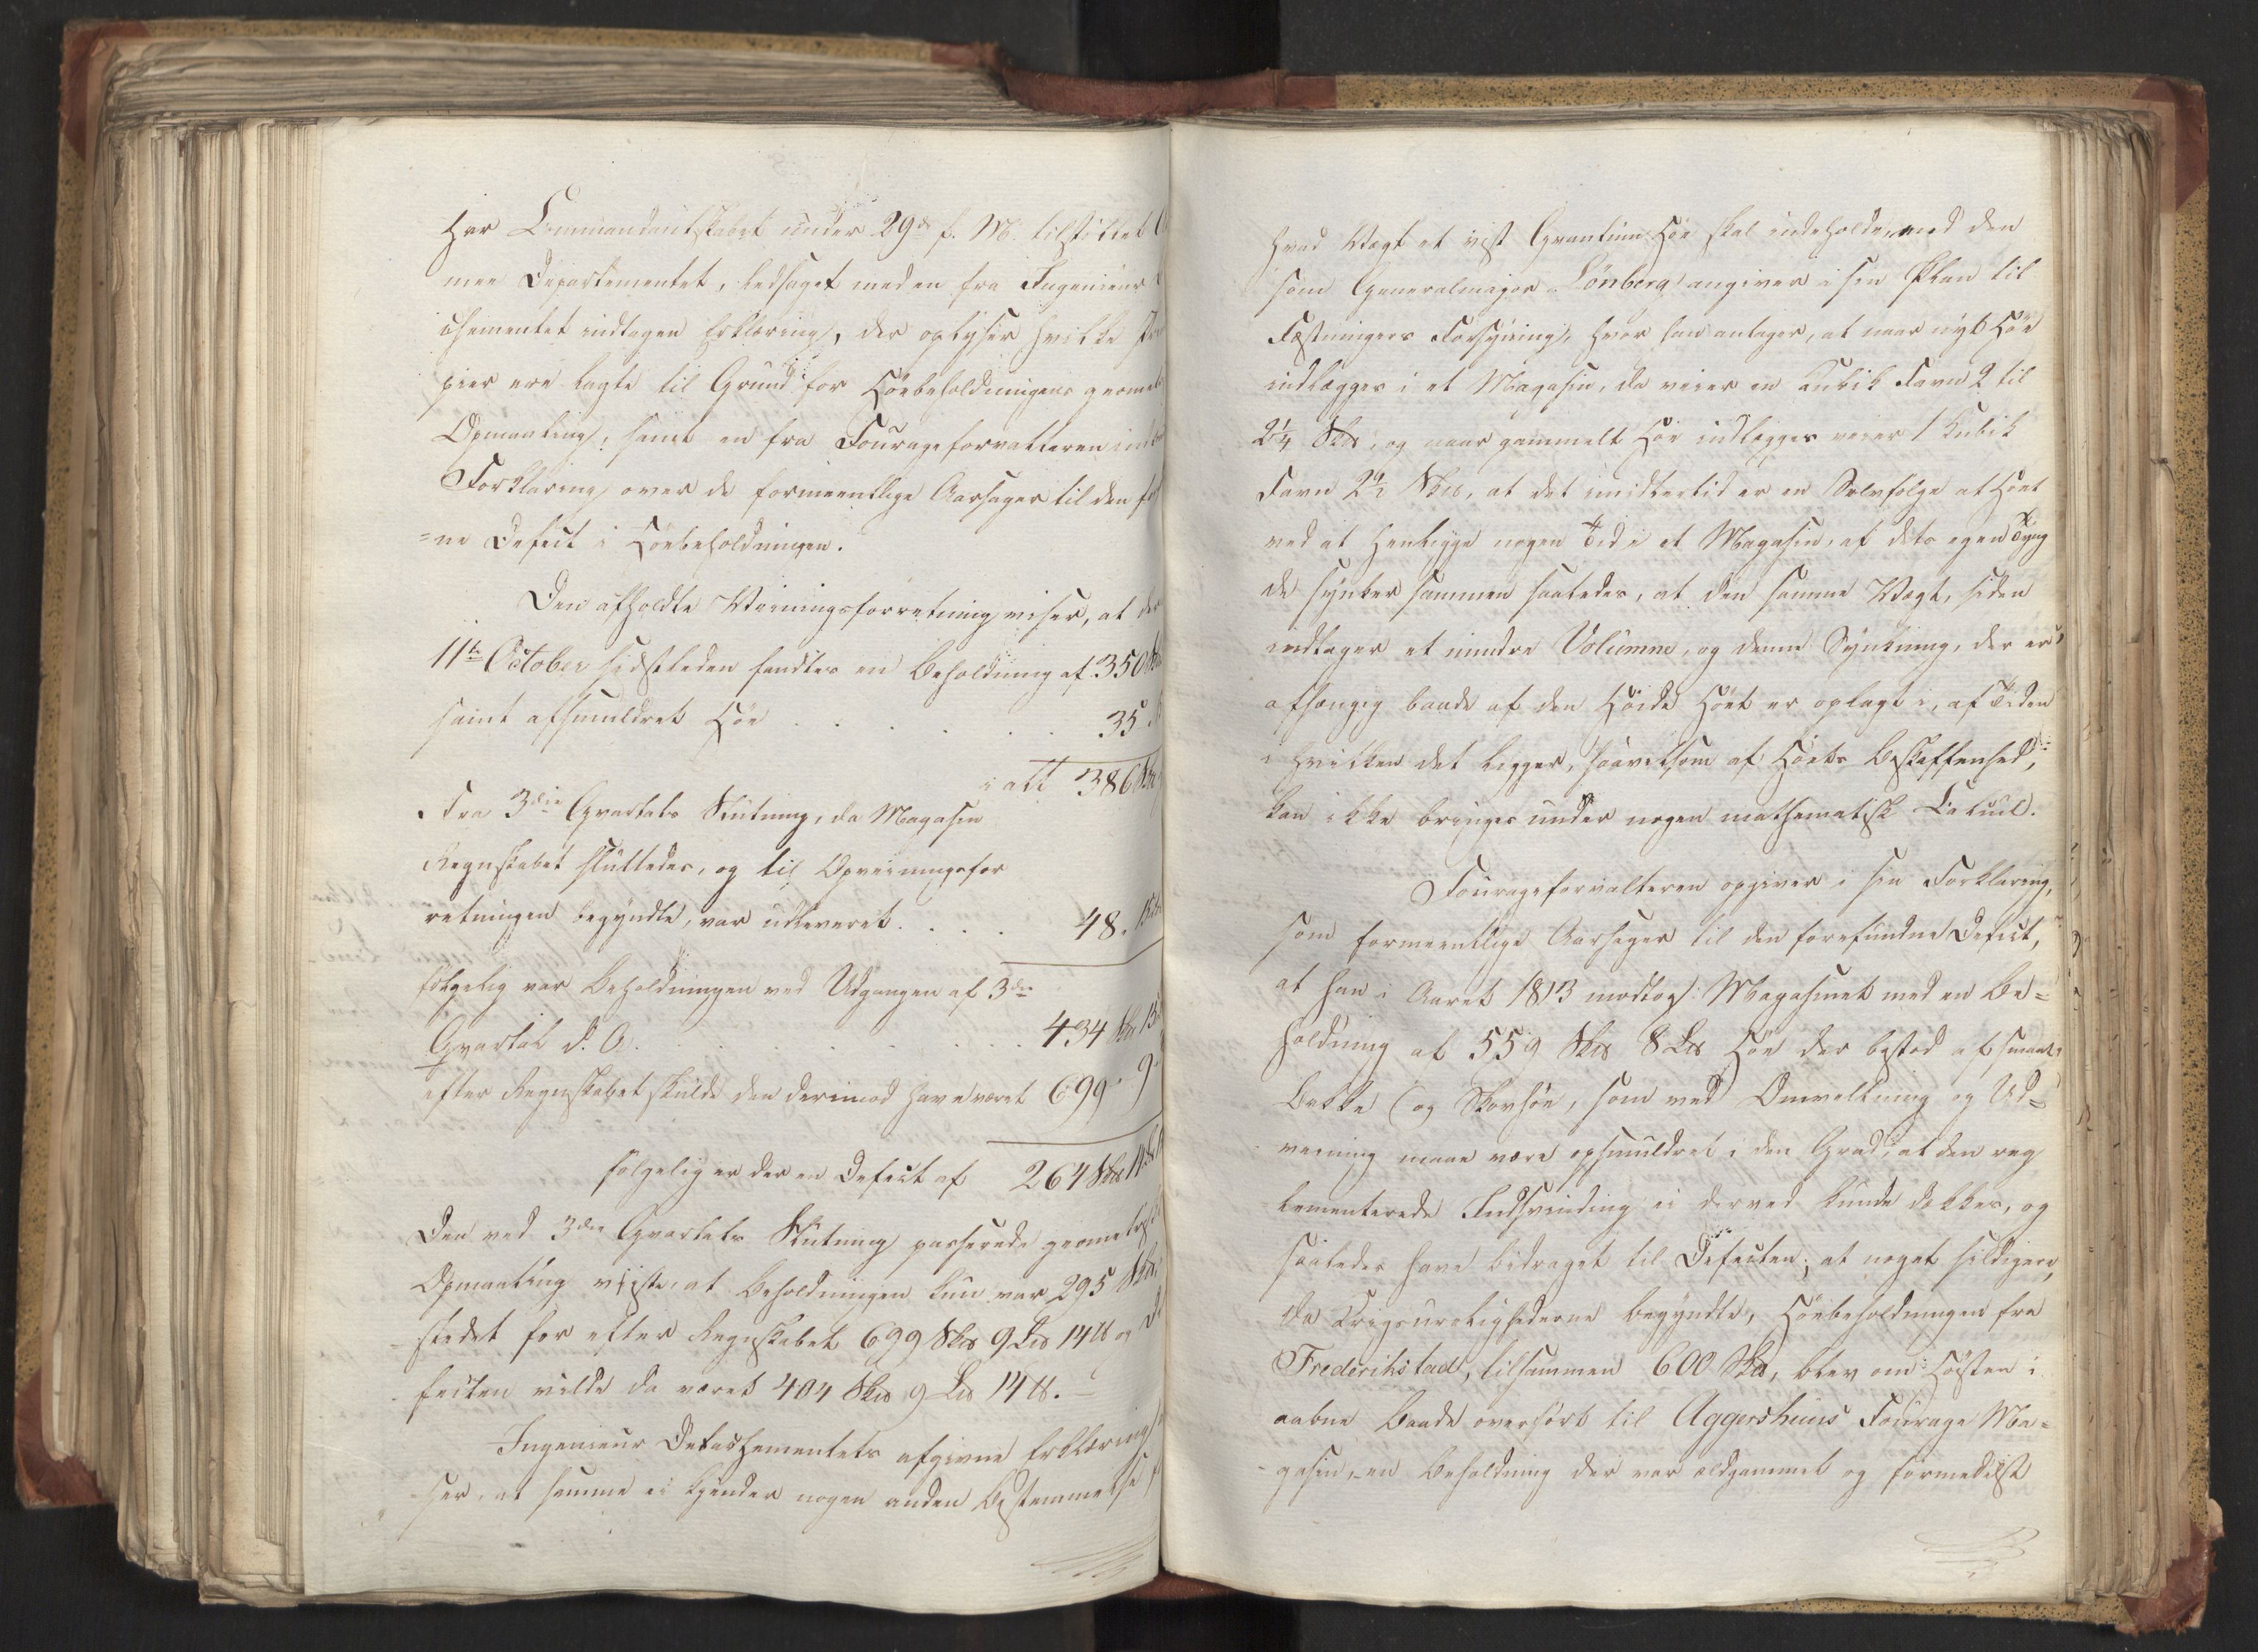 har Commandantskabet under 29de f. M. tilstillet
mee Departementet, ledsaget med en fra Ingenieur
chementet indtagen Erklæring, der oplyser hvilke
pier ere lagte til Grund for Höebeholdningens geomet
Opmaaling, samt en fra Fourageforvalteren ind
Forklaring over de formeentlige Aarsager til den
=ne Defect i Höebeholdningen.
Den afholdte Veiningsforretning viser, at
11te October sidstleden fandtes en Beholdning af 350
samt afsmuldret Höe . . . . . 35
i alt 386
Fra 3die Qvartals Slutning, da Magasin
Regnskabet sluttedes, og til Opveiningsfor
retningen begyndte, var udleveret . . . . 48.
følgelig var Beholdningen ved Udgangen af 3die
Qvartal d. A. . . . . . . . 434
efter Regnskabet skulde den derimod have været 699. 9.
følgelig er der en Defect af 264 Sk℔
Den ved 3die Qvartals Slutning passerede geometrisk
Opmaaling viiste, at Beholdningen kun var 295 Sk℔
stedet for efter Regnskabet 699 Sk℔ 9 L℔ 14 ℔ og
fecten vilde da været 404 Sk℔ 9 L℔ 14 ℔.
Ingenieur Detaschementets afgivne Erklæring
ser, at samme ei kjender nogen anden Bestemmelse
hvad Vægt et vist Qvantum Höe skal indeholde, end den
som Generalmajor Lönborg angiver i sin Plan til
Fæstningers Forsyning, hvor han antager, at naar nyt Höe
indlægges i et Magasin, da veier en Kubik Favn 2 til
2¼ Sk℔, og naar gammelt Höe indlægges veier 1 Kubik
Favn 2½ Sk℔, at det imidlertid er en Selvfølge at Höet
ved at henligge nogen Tid i et Magasin, af dets egen Tyng
de synker sammen saaledes, at den samme Vægt, siden
indtager et mindre Volumne, og denne Synkning, der er
afhængig baade af den Höide Höet er oplagt i, af Tiden
i hvilken det ligger, saavelsom af Höets Beskaffenhed,
kan ikke bringes under nogen mathematisk Calcul.
Fourageforvalteren opgiver i sin Forklaring,
som formeentlige Aarsager til den forefundne Defect,
at han i Aaret 1813 modtog Magasinet med en Be=
holdning af 559 Sk℔ 8 L℔ Höe der bestod af smaat
Bakke og Skovhöe, som ved Omveltning og Ud=
veining maae være opsmuldret i den Grad, at den reg
lementerede Indsvinding ei derved kunde dækkes, og
saaledes have bidraget til Defecten; at noget sildigere,
da Krigsurolighederne begyndte, Höebeholdningen fra
Frederikstad, tilsammen 600 Sk℔, blev om Høsten i
aabne Baade overført til Aggershuus Fourage Ma=
gasin, en Beholdning der var ældgammel og formedelst